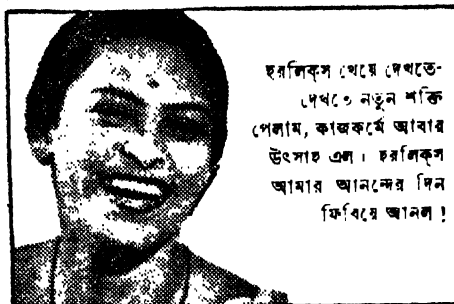 হরলিক্‌স খেয়ে দেখতে-
দেখতে নতুন শক্তি
পেলাম, কাজকর্মে আবার
উৎসাহ এল। হরলিক্‌স
আমার আনন্দের দিন
ফিরিয়ে আনল!